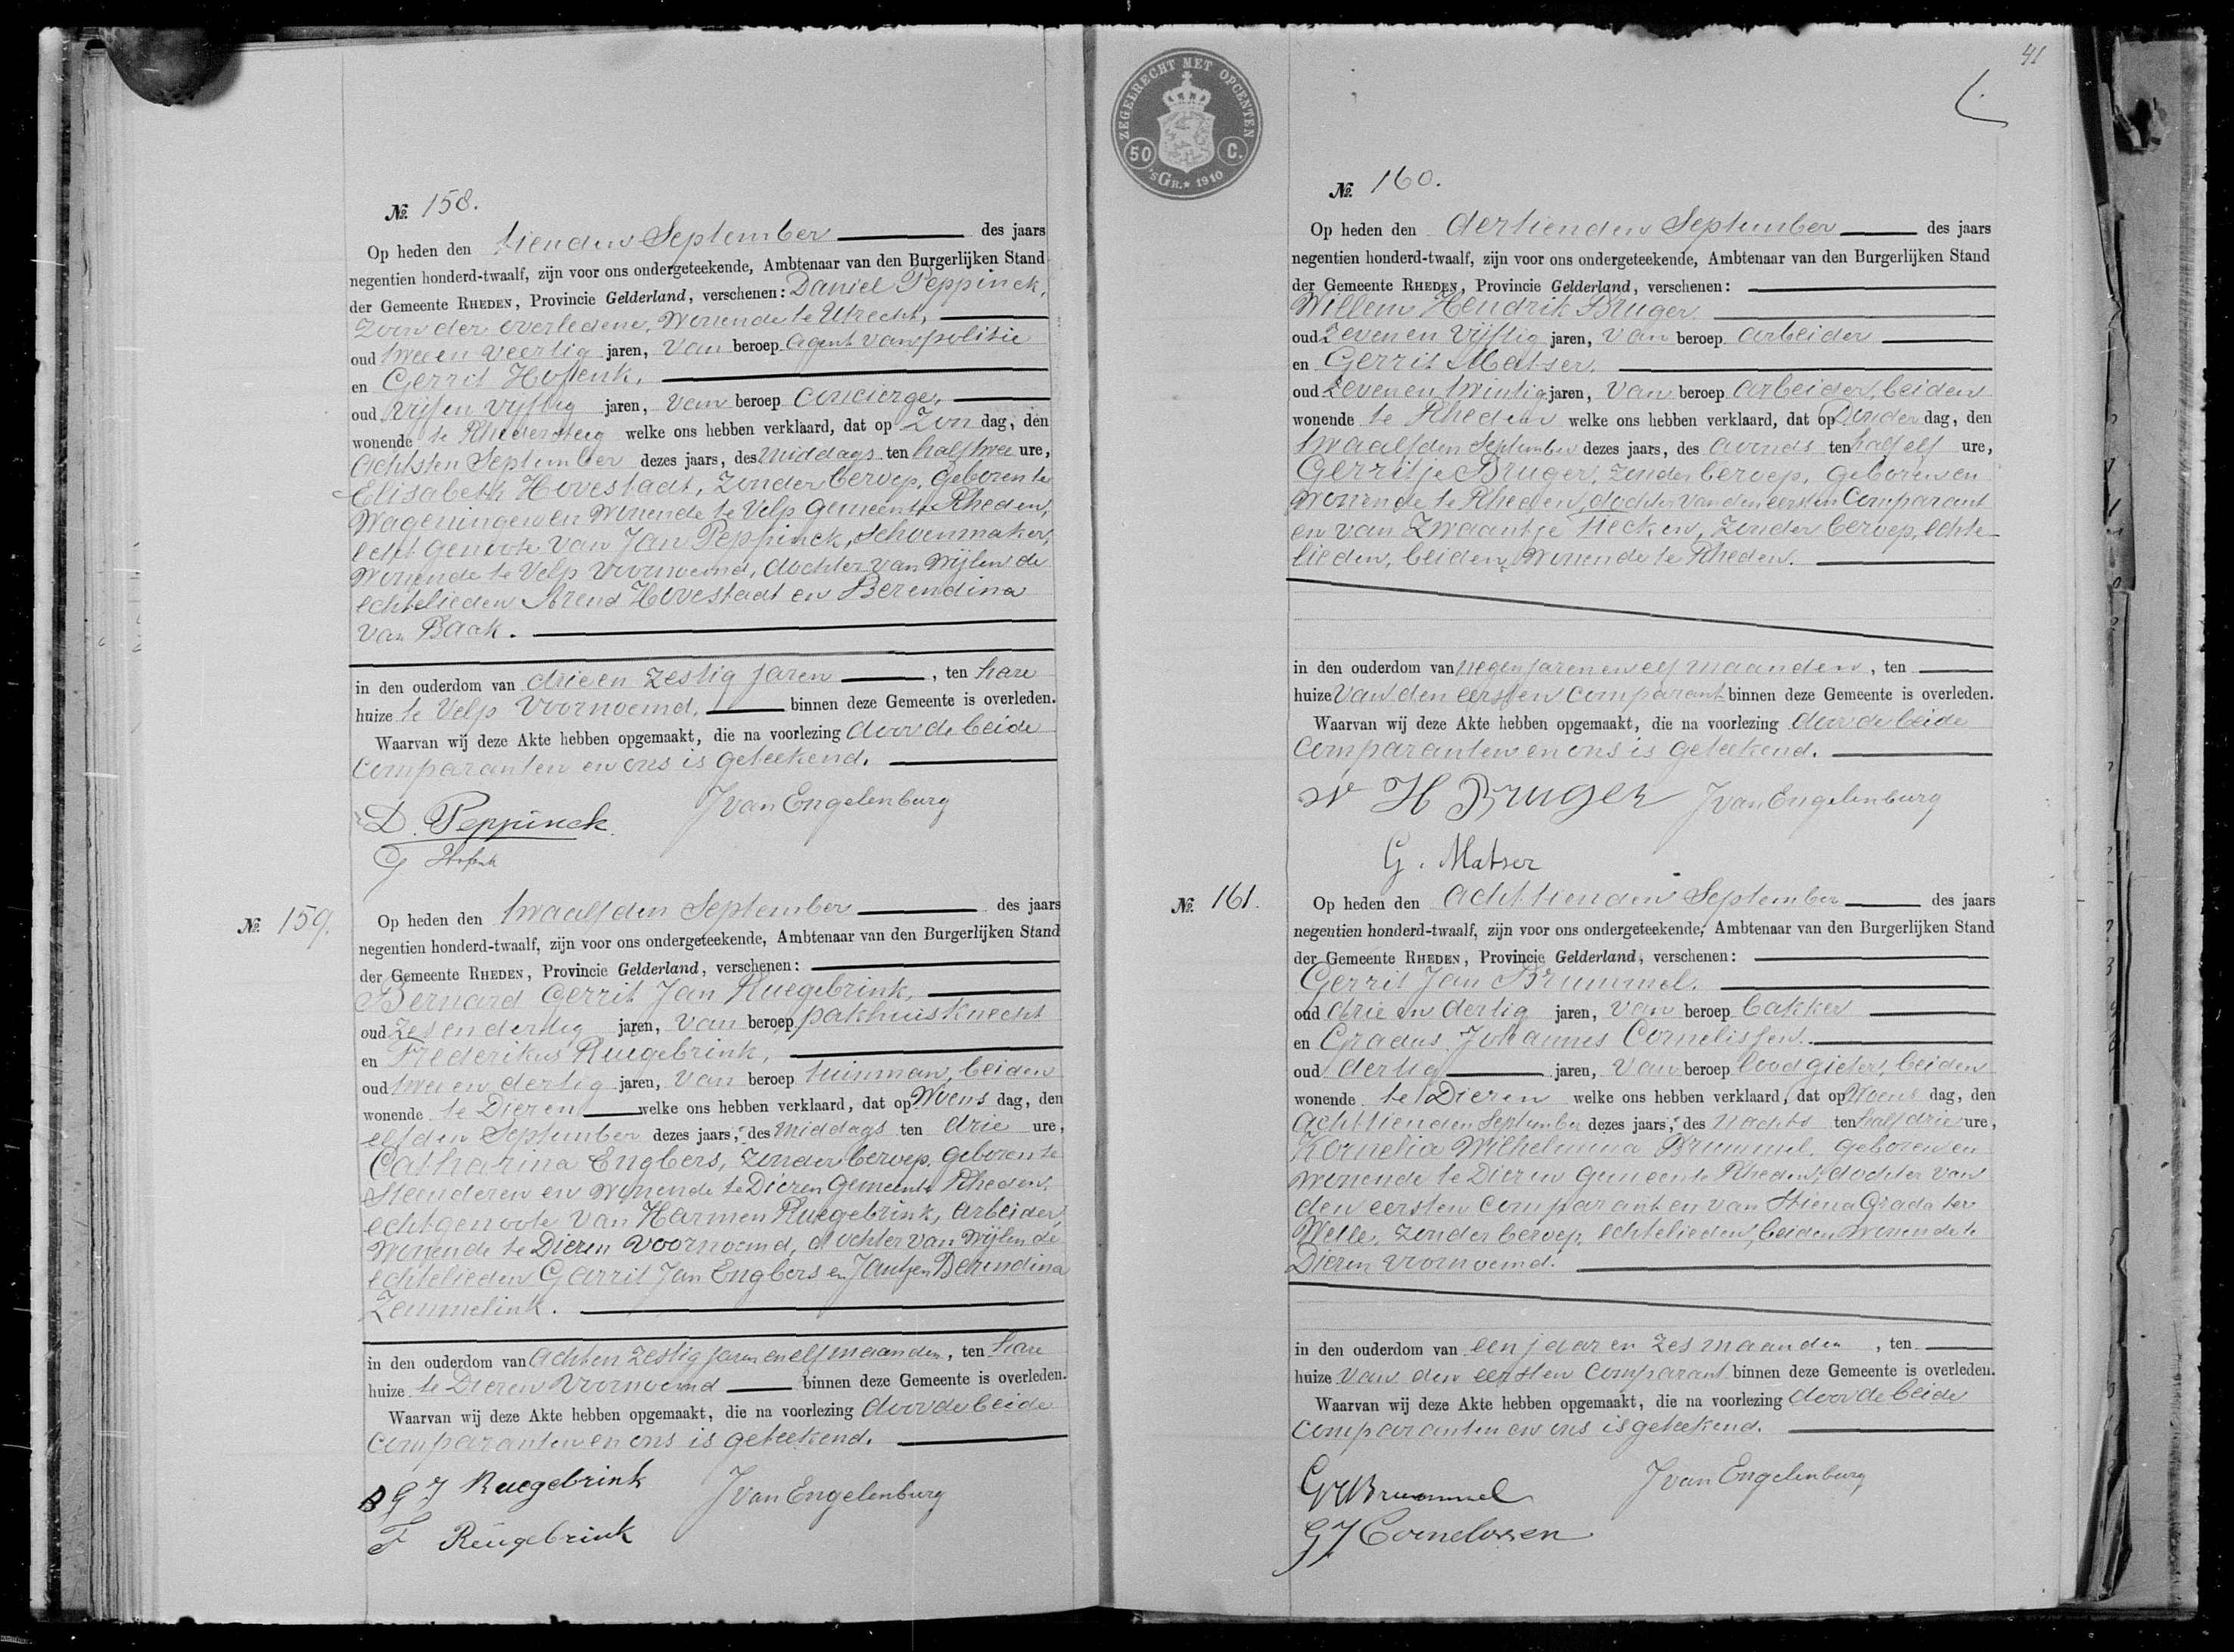 № 158.
Op heden den tienden September des jaars
negentien honderd-twaalf, zijn voor ons ondergeteekende, Ambtenaar van den Burgerlijken Stand
der Gemeente RHEDEN, Provincie Gelderland, verschenen: Daniel Peppinck,
zoon der overledene, wonende te Utrecht,
oud twee en veertig jaren, van beroep agent van politie
en Gerrit Hofenk,
oud vijf en vijftig jaren, van beroep concierge,
wonende te Rhedersteeg welke ons hebben verklaard, dat op Zon dag, den
achtsten September dezes jaars, des middags ten half twee ure,
Elisabeth Hovestadt, zonder beroep, geboren te
Wageningen en wonende te Velp gemeente Rheden,
echtgenoote van Jan Peppinck, schoenmaker,
wonende te Velp voornoemd, dochter van wijlen de
echtelieden Arend Hovestadt en Berendina
van Baak.
in den ouderdom van drie en zestig jaren, ten hare
huize te Velp voornoemd, binnen deze Gemeente is overleden.
Waarvan wij deze Akte hebben opgemaakt, die na voorlezing door de beide
comparanten en ons is geteekend.
D. Peppinck JvanEngelenburg
G Hofenk
№ 159.
Op heden den twaalfden September des jaars
negentien honderd-twaalf, zijn voor ons ondergeteekende, Ambtenaar van den Burgerlijken Stand
der Gemeente RHEDEN, Provincie Gelderland, verschenen:
Bernard Gerrit Jan Ruegebrink,
oud zes en dertig jaren, van beroep pakhuisknecht
en Frederikus Ruegebrink,
oud twee en dertig jaren, van beroep tuinman, beiden
wonende te Dieren welke ons hebben verklaard, dat op Woens dag, den
elfden September dezes jaars, des middags ten drie ure,
Catharina Engbers, zonder beroep, geboren te
Steenderen en wonende te Dieren gemeente Rheden,
echtgenoote van Harmen Ruegebrink, arbeider,
wonende te Dieren voornoemd, dochter van wijlen de
echtelieden Garrit Jan Engbers en Jantjen Berendina
Zemmelink.
in den ouderdom van acht en zestig jaren en elf maanden, ten hare
huize te Dieren voornoemd binnen deze Gemeente is overleden.
Waarvan wij deze Akte hebben opgemaakt, die na voorlezing door de beide
comparanten en ons is geteekend.
B G J Ruegebrink JvanEngelenburg
F Ruegebrink
41
ZEGELRECHT MET OPCENTEN
50 C.
'sGR. 1910
№ 160.
Op heden den dertienden September des jaars
negentien honderd-twaalf, zijn voor ons ondergeteekende, Ambtenaar van den Burgerlijken Stand
der Gemeente RHEDEN, Provincie Gelderland, verschenen:
Willem Hendrik Bruger
oud zeven en vijftig jaren, van beroep arbeider
en Gerrit Matser,
oud zeven en twintig jaren, van beroep arbeider, beiden
wonende te Rheden welke ons hebben verklaard, dat op Donder dag, den
twaalfden September dezes jaars, des avonds ten half elf ure,
Gerritje Bruger, zonder beroep, geboren en
wonende te Rheden, dochter van den eersten Comparant
en van Zwaantje Hecken, zonder beroep, echte-
lieden, beiden wonende te Rheden.
in den ouderdom van negen jaren en elf maanden, ten
huize van den eersten comparant binnen deze Gemeente is overleden.
Waarvan wij deze Akte hebben opgemaakt, die na voorlezing door de beide
comparanten en ons is geteekend.
W H Bruger JvanEngelenburg
G. Matser
№ 161.
Op heden den achttienden September des jaars
negentien honderd-twaalf, zijn voor ons ondergeteekende, Ambtenaar van den Burgerlijken Stand
der Gemeente RHEDEN, Provincie Gelderland, verschenen:
Gerrit Jan Brummel.
oud drie en dertig jaren, van beroep bakker
en Gradus Johannes Cornelissen.
oud dertig jaren, van beroep loodgieter, beiden
wonende te Dieren welke ons hebben verklaard, dat op Woens dag, den
achttienden September dezes jaars, des nachts ten half drie ure,
Kornelia Wilhelmina Brummel, geboren en
wonende te Dieren gemeente Rheden, dochter van
den eersten comparant en van Stiena Grada ter
Welle, zonder beroep, echtelieden, beiden wonende te
Dieren voornoemd.
in den ouderdom van een jaar en zes maanden, ten
huize van den eersten comparant binnen deze Gemeente is overleden.
Waarvan wij deze Akte hebben opgemaakt, die na voorlezing door de beide
comparanten en ons is geteekend.
GJBrummel JvanEngelenburg
GJCornelissen